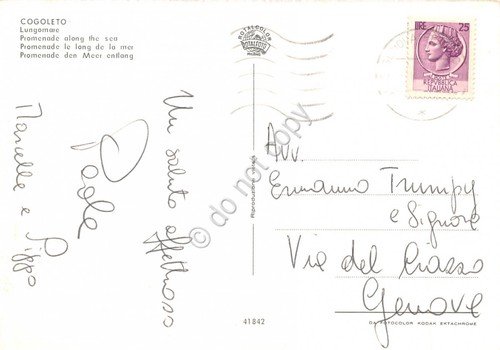 COGOLETO
Lungomare
Promenade along the sea
Promenade le long de la mer
Promenade den Meer entlang
ROTALCOLOR
ROTALFOTO
MILANO
LIRE 25
REPUBBLICA
ITALIANA
Un saluto affettuoso
Paola
Marcella e Pippo
Riproduzione vietata
Avv.
Ermanno Trumpy
e Signora
Via del
Genova
41842
DA FOTOCOLOR KODAK EKTACHROME
do not copy